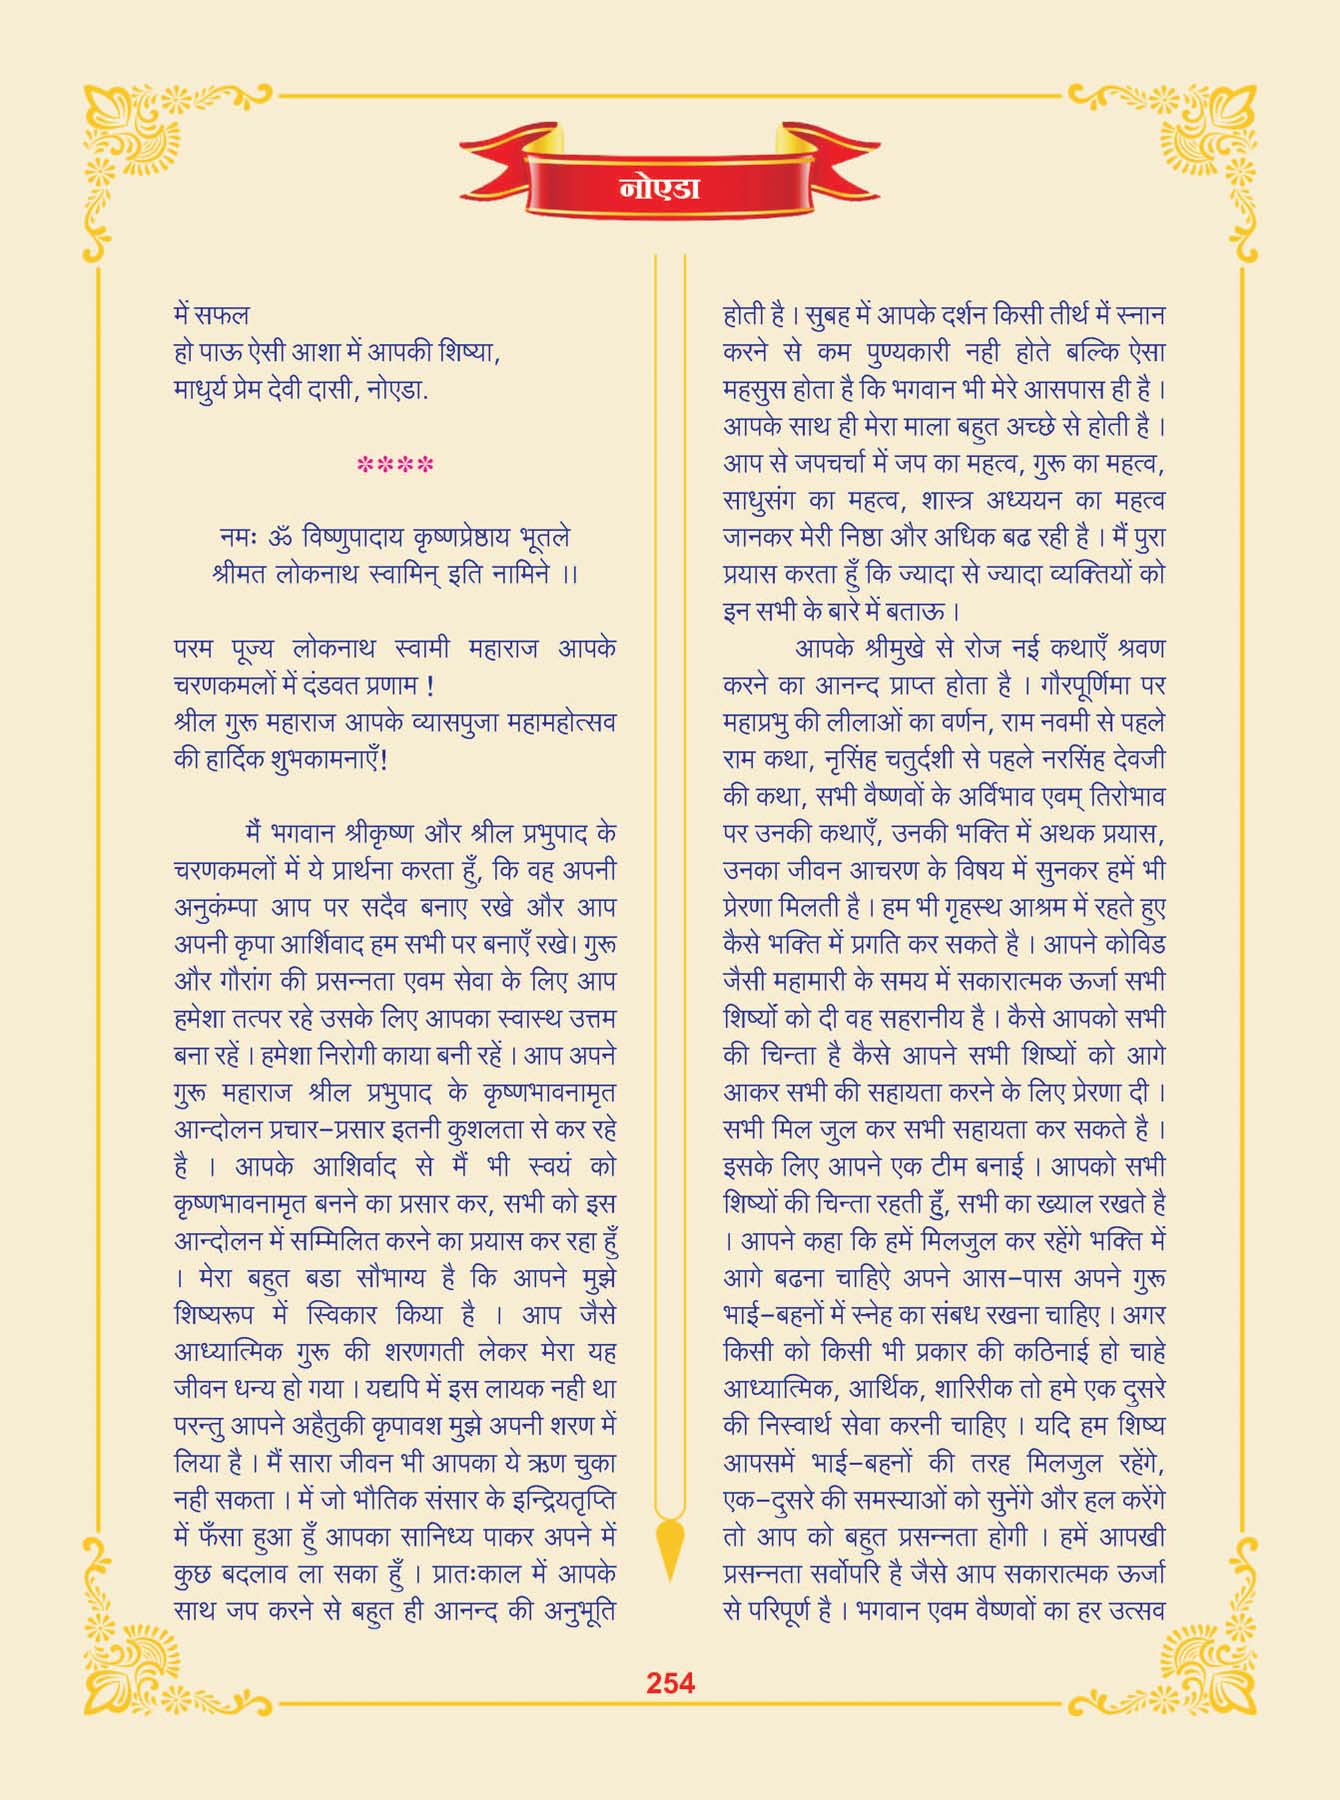 नोएडा
में सफल
हो पाऊ ऐसी आशा में आपकी शिष्या,
माधुर्य प्रेम देवी दासी, नोएडा.
****
नमः ॐ विष्णुपादाय कृष्णप्रेष्ठाय भूतले
श्रीमत लोकनाथ स्वामिन् इति नामिने ।।
परम पूज्य लोकनाथ स्वामी महाराज आपके
चरणकमलों में दंडवत प्रणाम !
श्रील गुरू महाराज आपके व्यासपुजा महामहोत्सव
की हार्दिक शुभकामनाएँ!
मैं भगवान श्रीकृष्ण और श्रील प्रभुपाद के
चरणकमलों में ये प्रार्थना करता हुँ, कि वह अपनी
अनुकंम्पा आप पर सदैव बनाए रखे और आप
अपनी कृपा आर्शिवाद हम सभी पर बनाएँ रखे। गुरू
और गौरांग की प्रसन्नता एवम सेवा के लिए आप
हमेशा तत्पर रहे उसके लिए आपका स्वास्थ उत्तम
बना रहें । हमेशा निरोगी काया बनी रहें । आप अपने
गुरू महाराज श्रील प्रभुपाद के कृष्णभावनामृत
आन्दोलन प्रचार–प्रसार इतनी कुशलता से कर रहे
है । आपके आशिर्वाद से मैं भी स्वयं को
कृष्णभावनामृत बनने का प्रसार कर, सभी को इस
आन्दोलन में सम्मिलित करने का प्रयास कर रहा हुँ
। मेरा बहुत बडा सौभाग्य है कि आपने मुझे
शिष्यरूप में स्विकार किया है । आप जैसे
आध्यात्मिक गुरू की शरणगती लेकर मेरा यह
जीवन धन्य हो गया । यद्यपि में इस लायक नही था
परन्तु आपने अहैतुकी कृपावश मुझे अपनी शरण में
लिया है । मैं सारा जीवन भी आपका ये ऋण चुका
नही सकता । में जो भौतिक संसार के इन्द्रियतृप्ति
में फँसा हुआ हुँ आपका सानिध्य पाकर अपने में
कुछ बदलाव ला सका हुँ । प्रातःकाल में आपके
साथ जप करने से बहुत ही आनन्द की अनुभूति
होती है । सुबह में आपके दर्शन किसी तीर्थ में स्नान
करने से कम पुण्यकारी नही होते बल्कि ऐसा
महसुस होता है कि भगवान भी मेरे आसपास ही है ।
आपके साथ ही मेरा माला बहुत अच्छे से होती है ।
आप से जपचर्चा में जप का महत्व, गुरू का महत्व,
साधुसंग का महत्व, शास्त्र अध्ययन का महत्व
जानकर मेरी निष्ठा और अधिक बढ रही है । मैं पुरा
प्रयास करता हुँ कि ज्यादा से ज्यादा व्यक्तियों को
इन सभी के बारे में बताऊ ।
आपके श्रीमुखे से रोज नई कथाएँ श्रवण
करने का आनन्द प्राप्त होता है । गौरपूर्णिमा पर
महाप्रभु की लीलाओं का वर्णन, राम नवमी से पहले
राम कथा, नृसिंह चतुर्दशी से पहले नरसिंह देवजी
की कथा, सभी वैष्णवों के अर्विभाव एवम् तिरोभाव
पर उनकी कथाएँ, उनकी भक्ति में अथक प्रयास,
उनका जीवन आचरण के विषय में सुनकर हमें भी
प्रेरणा मिलती है । हम भी गृहस्थ आश्रम में रहते हुए
कैसे भक्ति में प्रगति कर सकते है । आपने कोविड
जैसी महामारी के समय में सकारात्मक ऊर्जा सभी
शिष्यों को दी वह सहरानीय है । कैसे आपको सभी
की चिन्ता है कैसे आपने सभी शिष्यों को आगे
आकर सभी की सहायता करने के लिए प्रेरणा दी ।
सभी मिल जुल कर सभी सहायता कर सकते है ।
इसके लिए आपने एक टीम बनाई । आपको सभी
शिष्यों की चिन्ता रहती हुँ, सभी का ख्याल रखते है
। आपने कहा कि हमें मिलजुल कर रहेंगे भक्ति में
आगे बढना चाहिऐ अपने आस–पास अपने गुरू
भाई–बहनों में स्नेह का संबध रखना चाहिए । अगर
किसी को किसी भी प्रकार की कठिनाई हो चाहे
आध्यात्मिक, आर्थिक, शारिरीक तो हमे एक दुसरे
की निस्वार्थ सेवा करनी चाहिए । यदि हम शिष्य
आपसमें भाई–बहनों की तरह मिलजुल रहेंगे,
एक–दुसरे की समस्याओं को सुनेंगे और हल करेंगे
तो आप को बहुत प्रसन्नता होगी । हमें आपखी
प्रसन्नता सर्वोपरि है जैसे आप सकारात्मक ऊर्जा
से परिपूर्ण है । भगवान एवम वैष्णवों का हर उत्सव
254